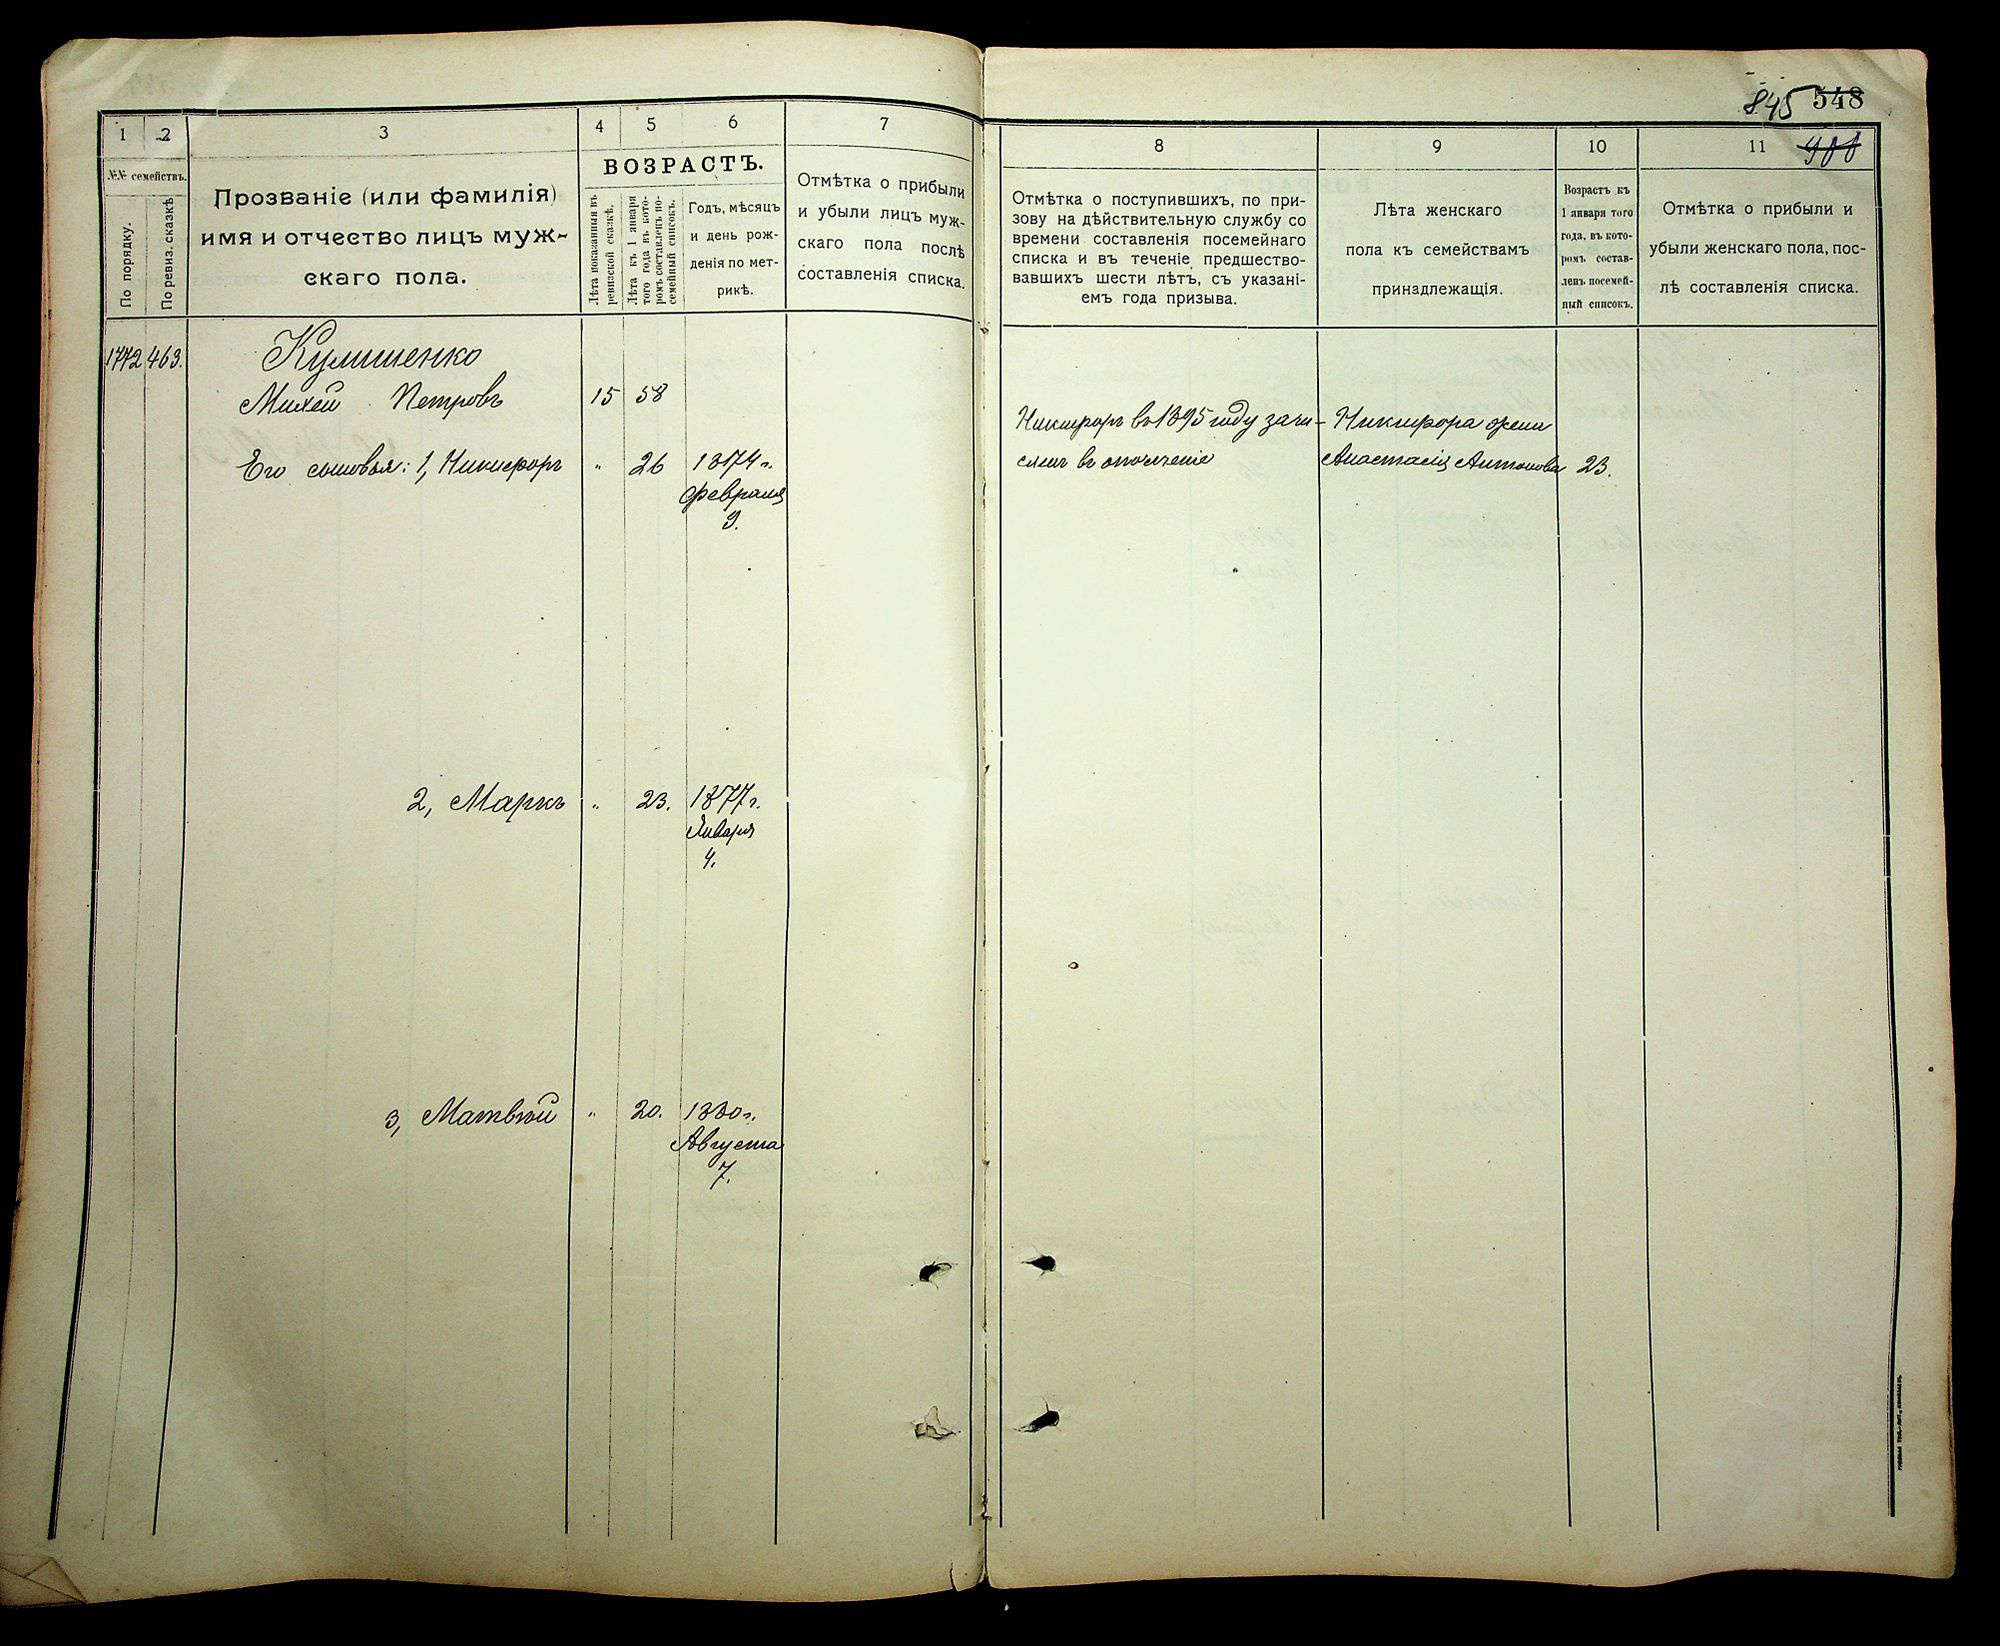 845 548
1 2 3 4 5 6 7
№№ семействъ.
По порядку.
По ревиз. сказкѣ
Прозваніе (или фамилія)
имя и отчество лицъ муж-
скаго пола.
ВОЗРАСТЪ.
Лѣта показанныя въ
ревизской сказкѣ.
Лѣта къ 1 января
того года въ кото-
ромъ составленъ по-
семейный списокъ.
Годъ, мѣсяцъ
и день рож-
денія по мет-
рикѣ.
Отмѣтка о прибыли
и убыли лицъ муж-
скаго пола послѣ
составленія списка.
8 9 10 11
Отмѣтка о поступившихъ, по при-
зову на дѣйствительную службу со
времени составленія посемейнаго
списка и въ теченіе предшество-
вавшихъ шести лѣтъ, съ указані-
емъ года призыва.
Лѣта женскаго
пола къ семействамъ
принадлежащія.
Возрастъ къ
1 января того
года, въ кото-
ромъ состав-
ленъ посемей-
ный списокъ.
Отмѣтка о прибыли и
убыли женскаго пола, пос-
лѣ составленія списка.
1772 463.
Кулишенко
Михей Петровъ 15 58
Его сыновья: 1, Никифоръ " 26 1874 г.
Февраля
9.
Никифоръ въ 1895 году зачи-
сленъ въ ополченіе
Никифора жена
Анастасія Антонова 23.
2, Маркъ " 23. 1877 г.
Января
4.
3, Матвѣй " 20. 1880 г.
Августа
7.